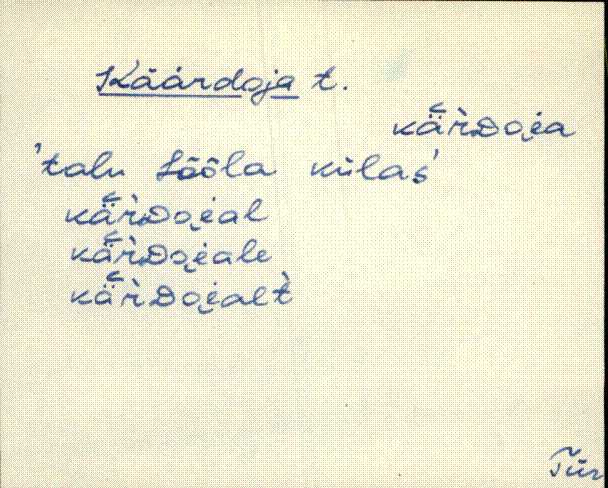 Käärdoja t.
kä̆r̀Do̯i̯a
'talu Sõõla külas'
kä̆r̀Do̯i̯al
kä̆r̀Do̯i̯ale
kä̆r̀Do̯i̯alt̀
Tür